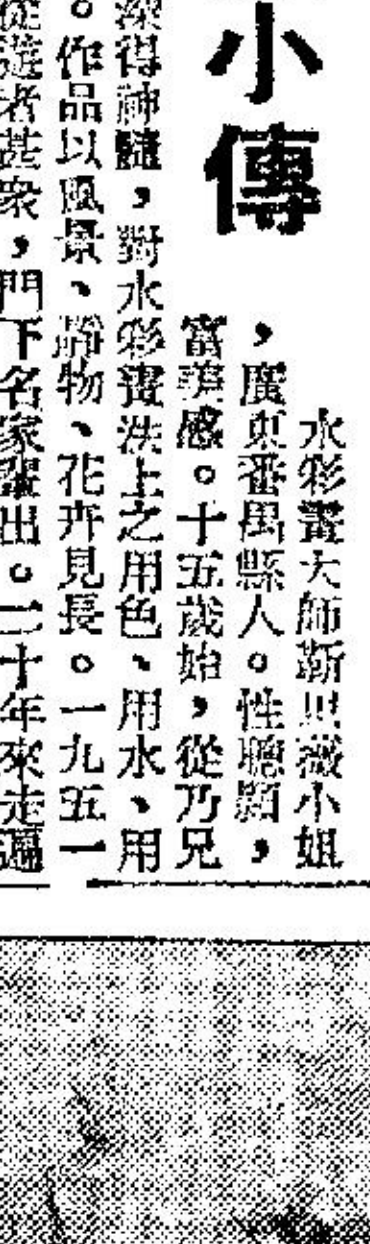 小傳
水彩畫大師靳思薇小姐
，廣東番禺縣人。性聰穎，
富美感。十五歲始，從乃兄
深得神髓，對水彩畫法上之用色、用水、用
。作品以風景、靜物、花卉見長。一九五一
從遊者甚衆，門下名家輩出。二十年來走遍